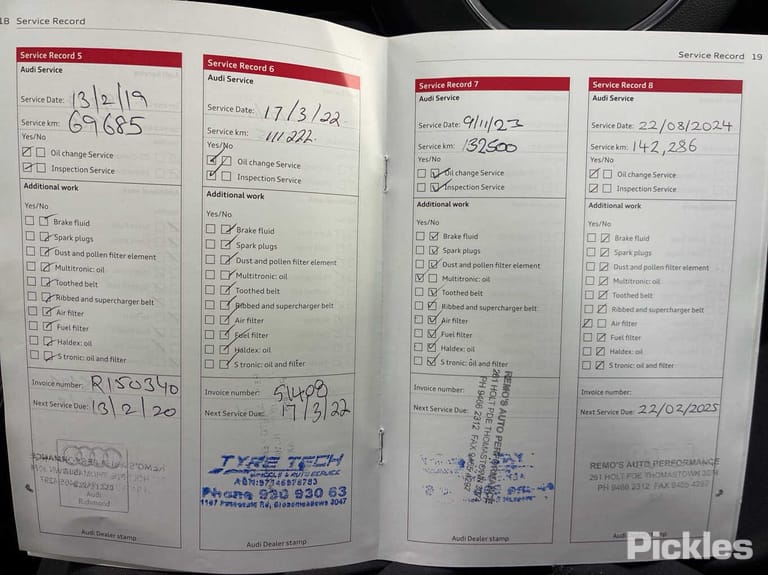 18 Service Record
Service Record 5
Audi Service
Service Date: 13/2/19
Service km: 69685
Yes/No
Oil change Service
Inspection Service
Additional work
Yes/No
Brake fluid
Spark plugs
Dust and pollen filter element
Multitronic: oil
Toothed belt
Ribbed and supercharger belt
Air filter
Fuel filter
Haldex: oil
S tronic: oil and filter
Invoice number: R150340
Next Service Due: 13/2/20
Audi
Richmond
Audi Dealer stamp
Service Record 6
Audi Service
Service Date: 17/3/22
Service km: 111222.
Yes/No
Oil change Service
Inspection Service
Additional work
Yes/No
Brake fluid
Spark plugs
Dust and pollen filter element
Multitronic: oil
Toothed belt
Ribbed and supercharger belt
Air filter
Fuel filter
Haldex: oil
S tronic: oil and filter
Invoice number: 51408
Next Service Due: 17/3/22
TYRE TECH
WHEELS & AUTO SERVICE
Phone 930 930 63
Audi Dealer stamp
Service Record 19
Service Record 7
Audi Service
Service Date: 9/11/23
Service km: 132500
Yes/No
Oil change Service
Inspection Service
Additional work
Yes/No
Brake fluid
Spark plugs
Dust and pollen filter element
Multitronic: oil
Toothed belt
Ribbed and supercharger belt
Air filter
Fuel filter
Haldex: oil
S tronic: oil and filter
Invoice number:
Next Service Due:
REMO'S AUTO PERF
261 HOLT PDE THOMASTOWN
PH 9466 2312 FAX 9465
Audi Dealer stamp
Service Record 8
Audi Service
Service Date: 22/08/2024
Service km: 142,286
Yes/No
Oil change Service
Inspection Service
Additional work
Yes/No
Brake fluid
Spark plugs
Dust and pollen filter element
Multitronic: oil
Toothed belt
Ribbed and supercharger belt
Air filter
Fuel filter
Haldex: oil
S tronic: oil and filter
Invoice number:
Next Service Due: 22/02/2025
REMO'S AUTO PERFORMANCE
261 HOLT PDE THOMASTOWN 3074
PH 9466 2312 FAX 9465 4297
Audi Dealer stamp
Pickles